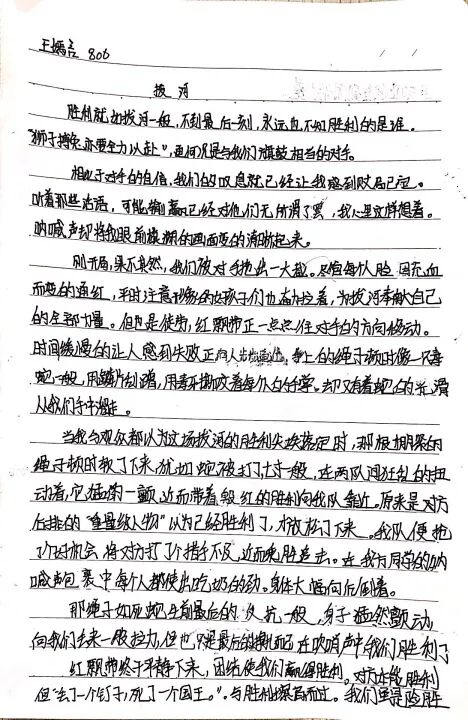 王嫣含 806
拔河
胜利就如拔河一般，不到最后一刻，永远也不知胜利的是谁。
"狮子搏兔亦要全力以赴"，更何况是与我们旗鼓相当的对手。
相比于对手的自信，我们的叹息就已经让我感到败局已定。
听着那些话语，可能输赢已经对他们无所谓了罢，我心里这样想着。
呐喊声却将我眼前模糊的画面变的清晰起来。
刚开局，果不其然，我们被对手拖出一大截。尽管每个人脸因充血
而变的通红，平时注意形象的女孩子们也奋力拉着，为拔河奉献自己
的全部力量。但也是徒劳，红飘带正一点点往对手的方向移动。
时间缓慢的让人感到失败正向人步步逼近。手上的绳子顿时像一只毒
蛇一般，用鳞片刮蹭，用毒牙撕咬着每个人的手掌。却又有着蛇的光滑
从我们手中溜走。
当我与观众都以为这场拔河的胜利失块落定时，那根粗粝的
绳子顿时软了下来，犹如蛇被打七寸一般，在两队间狂乱的扭
动着，它猛第一颤进而带着鲜红的胜利向我队靠近。原来是对方
后排的"重量级人物"以为已经胜利了，才放松了下来。我队便抢
了个好机会，将对方打了个措手不及，进而乘胜追击。在我与同学的呐
喊声包裹中每个人都使出吃奶的劲。身体大幅向后倒着。
那绳子如死蛇生前最后的反抗一般，身子猛然颤动
向我们传来一股拉力，但也只是最后的挣扎而已在吹哨声中我们胜利了
红飘带终于平静下来，团结使我们赢得胜利。对方在能胜利
但"丢了一个钉子，死了一个国王"。与胜利擦肩而过。我们更是险胜